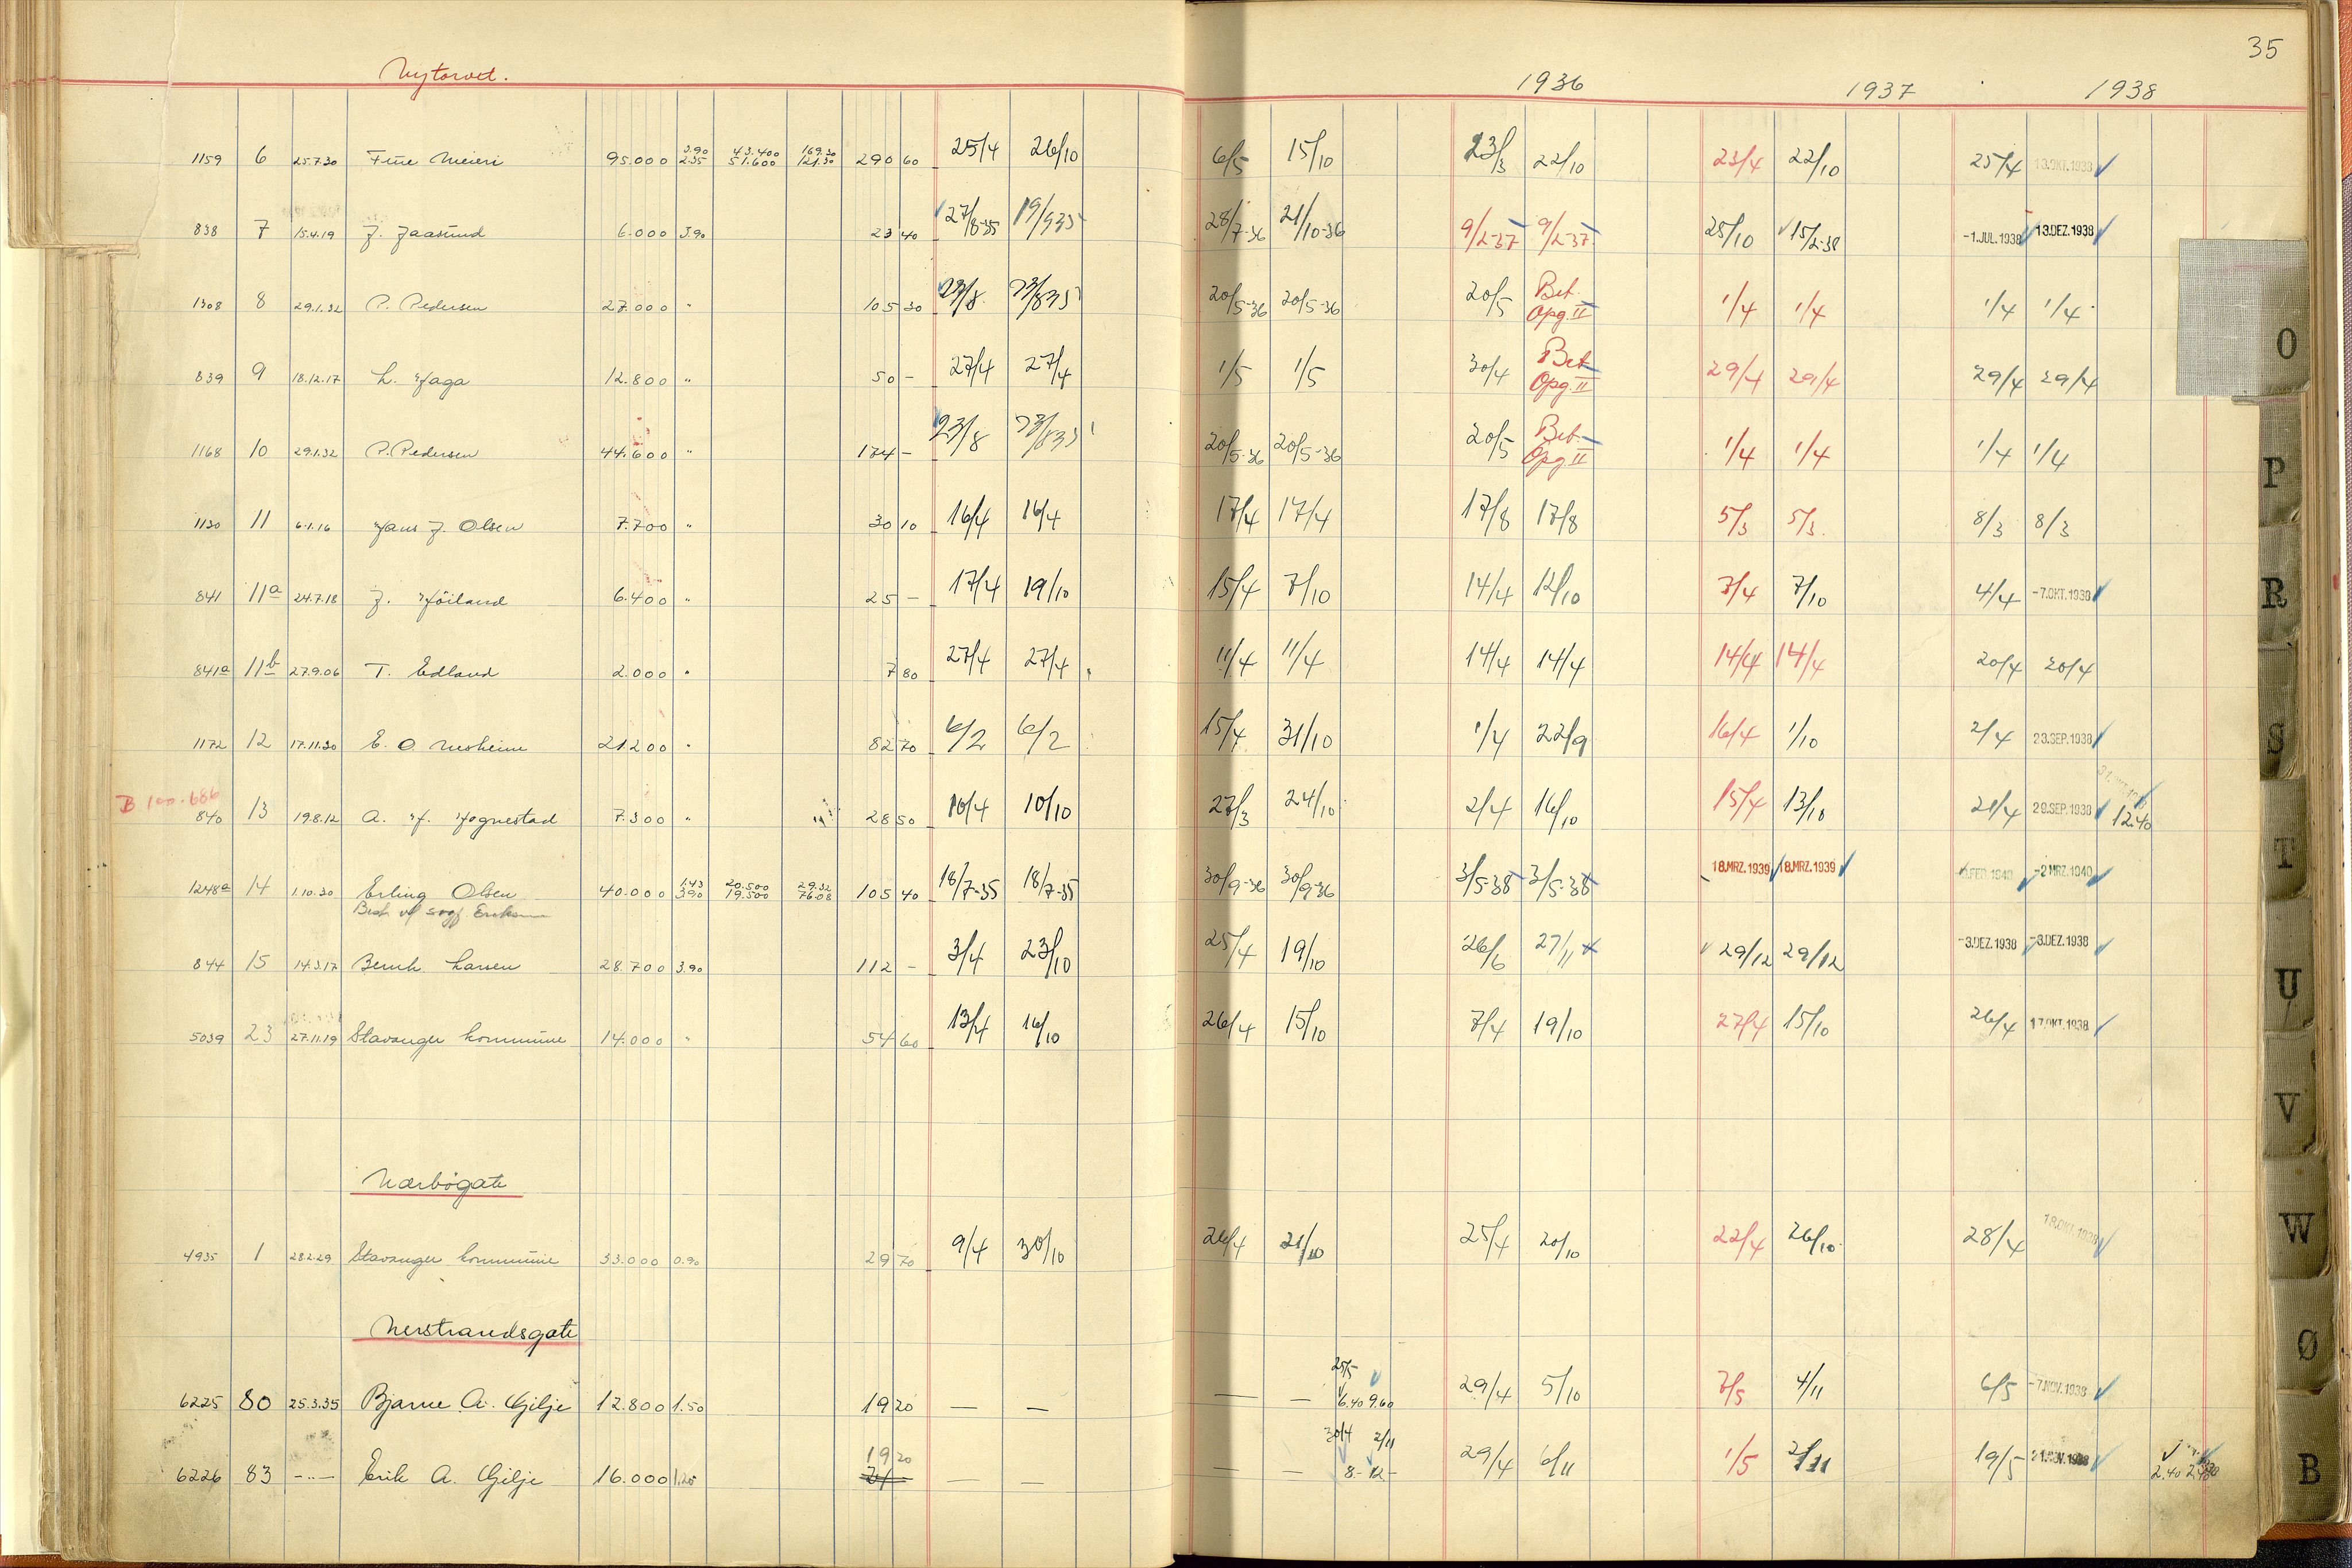 35
Nytorvet. 1936 1937 1938
1159 6 25.7.30 Fine Meieri 95.000 3.90 2.35 43.400 51.600 169.30 121.30 290 60 25/4 26/10 6/5 15/10 23/3 22/10 23/4 22/10 25/4 13.OKT.1938
838 7 15.4.19 J. Jaasund 6.000 3.90 23 40 27/8-35 19/9 35 28/7-36 21/10-36 9/2-37 9/2-37 25/10 15/2-38 -1.JUL.1938 13.DEZ.1938
1308 8 29.1.32 P. Pedersen 27.000 " 105 30 23/8 23/8 35 20/5-36 20/5-36 20/5 Bet. Opg. II 1/4 1/4 1/4 1/4
839 9 18.12.17 L. Haga 12.800 " 50 - 27/4 27/4 1/5 1/5 30/4 Bet Opg. II 29/4 29/4 29/4 29/4
1168 10 29.1.32 P. Pedersen 44.600 " 174 - 23/8 23/8 35 20/5-36 20/5-36 20/5 Bet. Opg II 1/4 1/4 1/4 1/4
1130 11 6.1.16 Hans J. Olsen 7.700 " 30 10 16/4 16/4 17/4 17/4 17/8 17/8 5/3 5/3 8/3 8/3
841 11a 24.7.18 J. Höiland 6.400 " 25 - 17/4 19/10 15/4 7/10 14/4 12/10 3/4 7/10 4/4 -7.OKT.1938
841a 11b 27.9.06 T. Edland 2.000 " 7 80 27/4 27/4 11/4 11/4 14/4 14/4 14/4 14/4 20/4 20/4
1172 12 17.11.30 E. O. Nesheim 21.200 " 82 70 6/2 6/2 15/4 31/10 1/4 22/9 16/4 1/10 2/4 23.SEP.1938
B 100.686
840 13 19.8.12 A. H. Hognestad 7.300 " 28 50 10/4 10/10 27/3 24/10 2/4 16/10 15/4 13/10 21/4 29.SEP.1938 12.40
1248a 14 1.10.30 Erling Olsen 40.000 1.43 3.90 20.500 19.500 29.32 76.08 105 40 18/7-35 18/7-35 30/9-36 30/9-36 3/5-38 3/5-38 18.MRZ.1939 18.MRZ.1939 FEB.1940 -2.MRZ.1940
844 15 14.3.17 Bernh Larsen 28.700 3.90 112 - 3/4 23/10 25/4 19/10 26/6 27/11 29/12 29/12 -3.DEZ.1938 -3.DEZ.1938
5039 23 27.11.19 Stavanger kommune 14.000 " 54 60 13/4 16/10 26/4 15/10 7/4 19/10 27/4 15/10 26/4 17.OKT.1938
Nærbögate
4935 1 28.2.29 Stavanger kommune 33.000 0.90 29 70 9/4 30/10 26/4 21/10 25/4 20/10 22/4 26/10 28/4 18.OKT.1938
Nerstrandsgate
25/5
6225 80 25.3.35 Bjarne A. Gilje 12.800 1.50 19 20 — — — — 6.40 9.60 29/4 5/10 7/5 4/11 6/5 -7.NOV.1938
30/4 2/11
19 20
6226 83 -"- Erik A. Gilje 16.000 1.20 — — — — 8- 12- 29/4 6/11 1/5 2/11 19/5 21.NOV.1938 2.40
O
P
R
S
T
U
V
W
Ø
B